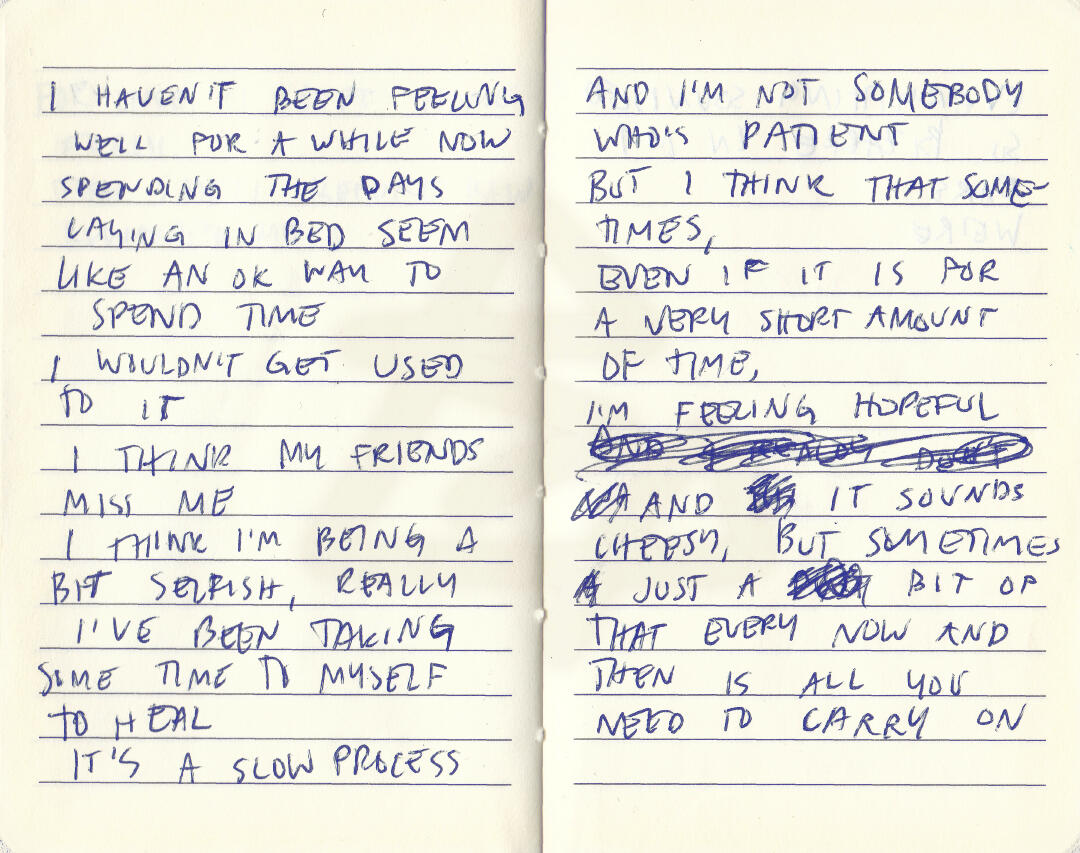 I HAVEN'T BEEN FEELING
WELL FOR A WHILE NOW
SPENDING THE DAYS
LAYING IN BED SEEM
LIKE AN OK WAY TO
SPEND TIME
I WOULDN'T GET USED
TO IT
I THINK MY FRIENDS
MISS ME
I THINK I'M BEING A
BIT SELFISH, REALLY
I'VE BEEN TAKING
SOME TIME TO MYSELF
TO HEAL
IT'S A SLOW PROCESS
AND I'M NOT SOMEBODY
WHO'S PATIENT
BUT I THINK THAT SOME-
TIMES,
EVEN IF IT IS FOR
A VERY SHORT AMOUNT
OF TIME,
I'M FEELING HOPEFUL
AND I REALLY DON'T
AND IT SOUNDS
CHEESY, BUT SOMETIMES
JUST A BIT OF
THAT EVERY NOW AND
THEN IS ALL YOU
NEED TO CARRY ON